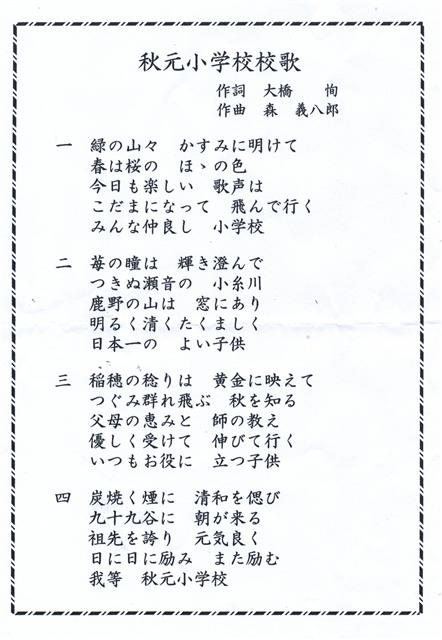 秋元小学校校歌
作詞　大橋　　恂
作曲　森　義八郎
一　緑の山々　かすみに明けて
春は桜の　ほゝの色
今日も楽しい　歌声は
こだまになって　飛んで行く
みんな仲良し　小学校
二　苺の瞳は　輝き澄んで
つきぬ瀬音の　小糸川
鹿野の山は　窓にあり
明るく清くたくましく
日本一の　よい子供
三　稲穂の稔りは　黄金に映えて
つぐみ群れ飛ぶ　秋を知る
父母の恵みと　師の教え
優しく受けて　伸びて行く
いつもお役に　立つ子供
四　炭焼く煙に　清和を偲び
九十九谷に　朝が来る
祖先を誇り　元気良く
日に日に励み　また励む
我等　秋元小学校